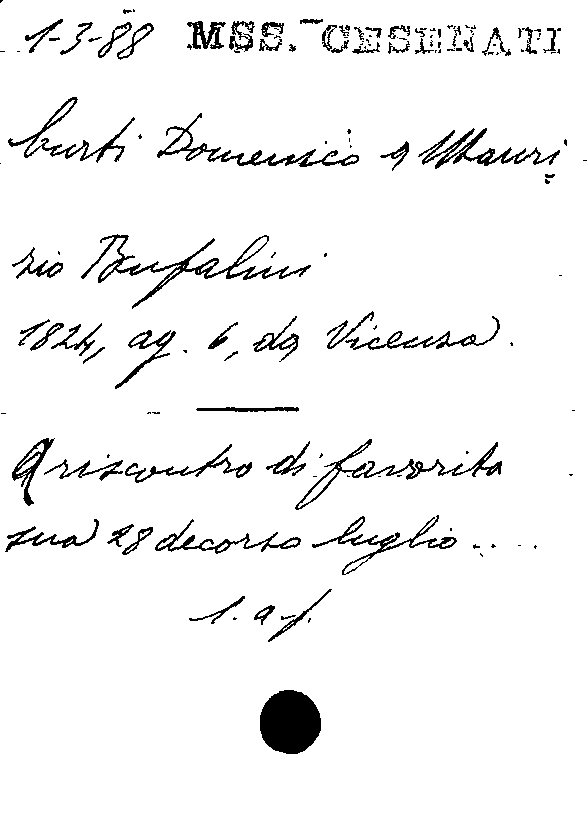 1-3-88 MSS. CESENATI
Curti Domenico a Mauri
zio Bufalini
1824, ag. 6, da Vicenza.
A riscontro di favorita
sua 28 decorso luglio....
1. a f.